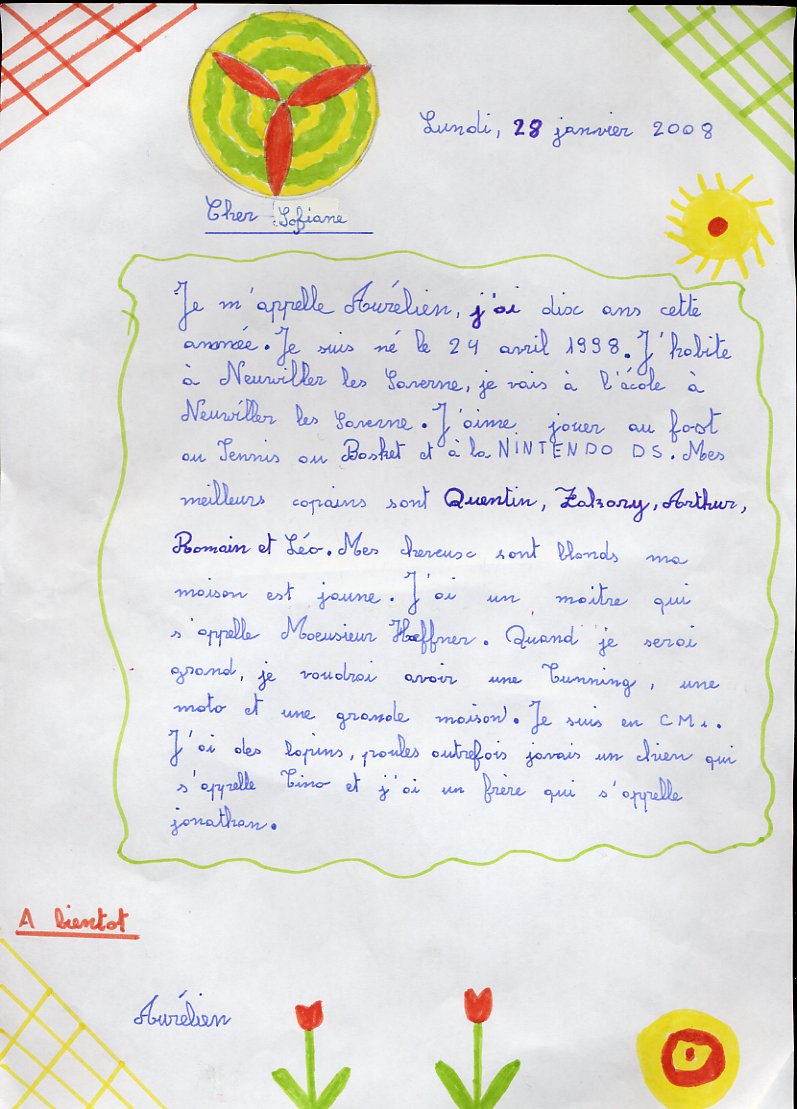 Lundi, 28 janvier 2008
Cher Sofiane
Je m'appelle Aurélien, j'ai dix ans cette
année. Je suis né le 24 avril 1998. J'habite
à Neuwiller les Saverne, je vais à l'école à
Neuwiller les Saverne. J'aime jouer au foot
au Tennis au Basket et à la NINTENDO DS. Mes
meilleurs copains sont Quentin, Zakary, Arthur,
Romain et Léo. Mes cheveux sont blonds ma
maison est jaune. J'ai un maitre qui
s'appelle Moeusieur Hæffner. Quand je serai
grand, je voudrai avoir une Tunning, une
moto et une grande maison. Je suis en CM1.
J'ai des lapins, poules autrefois javais un chien qui
s'appelle Tino et j'ai un frère qui s'appelle
jonathan.
A bientot
Aurélien